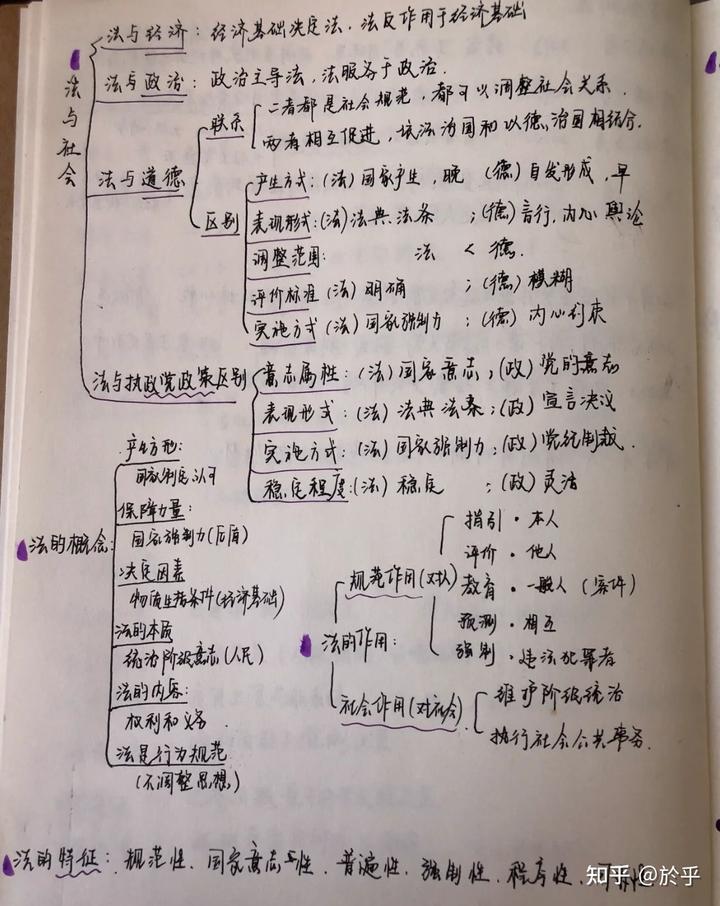 法与社会
法与经济：经济基础决定法，法反作用于经济基础
法与政治：政治主导法，法服务于政治．
法与道德
联系
二者都是社会规范，都可以调整社会关系．
两者相互促进，依法治国和以德治国相结合．
区别
产生方式：(法)国家产生，晚 (德)自发形成，早
表现形式：(法)法典、法条；(德)言行，内心 舆论
调整范围： 法 < 德．
评价标准 (法) 明确；(德) 模糊
实施方式 (法) 国家强制力；(德) 内心约束
法与执政党政策区别
意志属性：(法) 国家意志；(政) 党的意志
表现形式：(法) 法典法条；(政) 宣言决议
实施方式：(法) 国家强制力；(政) 党纪制裁．
稳定程度：(法) 稳定；(政) 灵活
法的概念：
产生方形：
国家制定、认可
保障力量：
国家强制力(后盾)
决定因素
物质生活条件(经济基础)
法的本质
统治阶级意志(人民)
法的内容：
权利和义务．
法是行为规范
(不调整思想)
法的作用：
规范作用(对人)
指引·本人
评价·他人
教育·一般人(案件)
预测·相互
强制·违法犯罪者
社会作用(对社会)
维护阶级统治
执行社会公共事务．
法的特征：规范性、国家意志性、普遍性、强制性、程序性、
知乎 @於乎